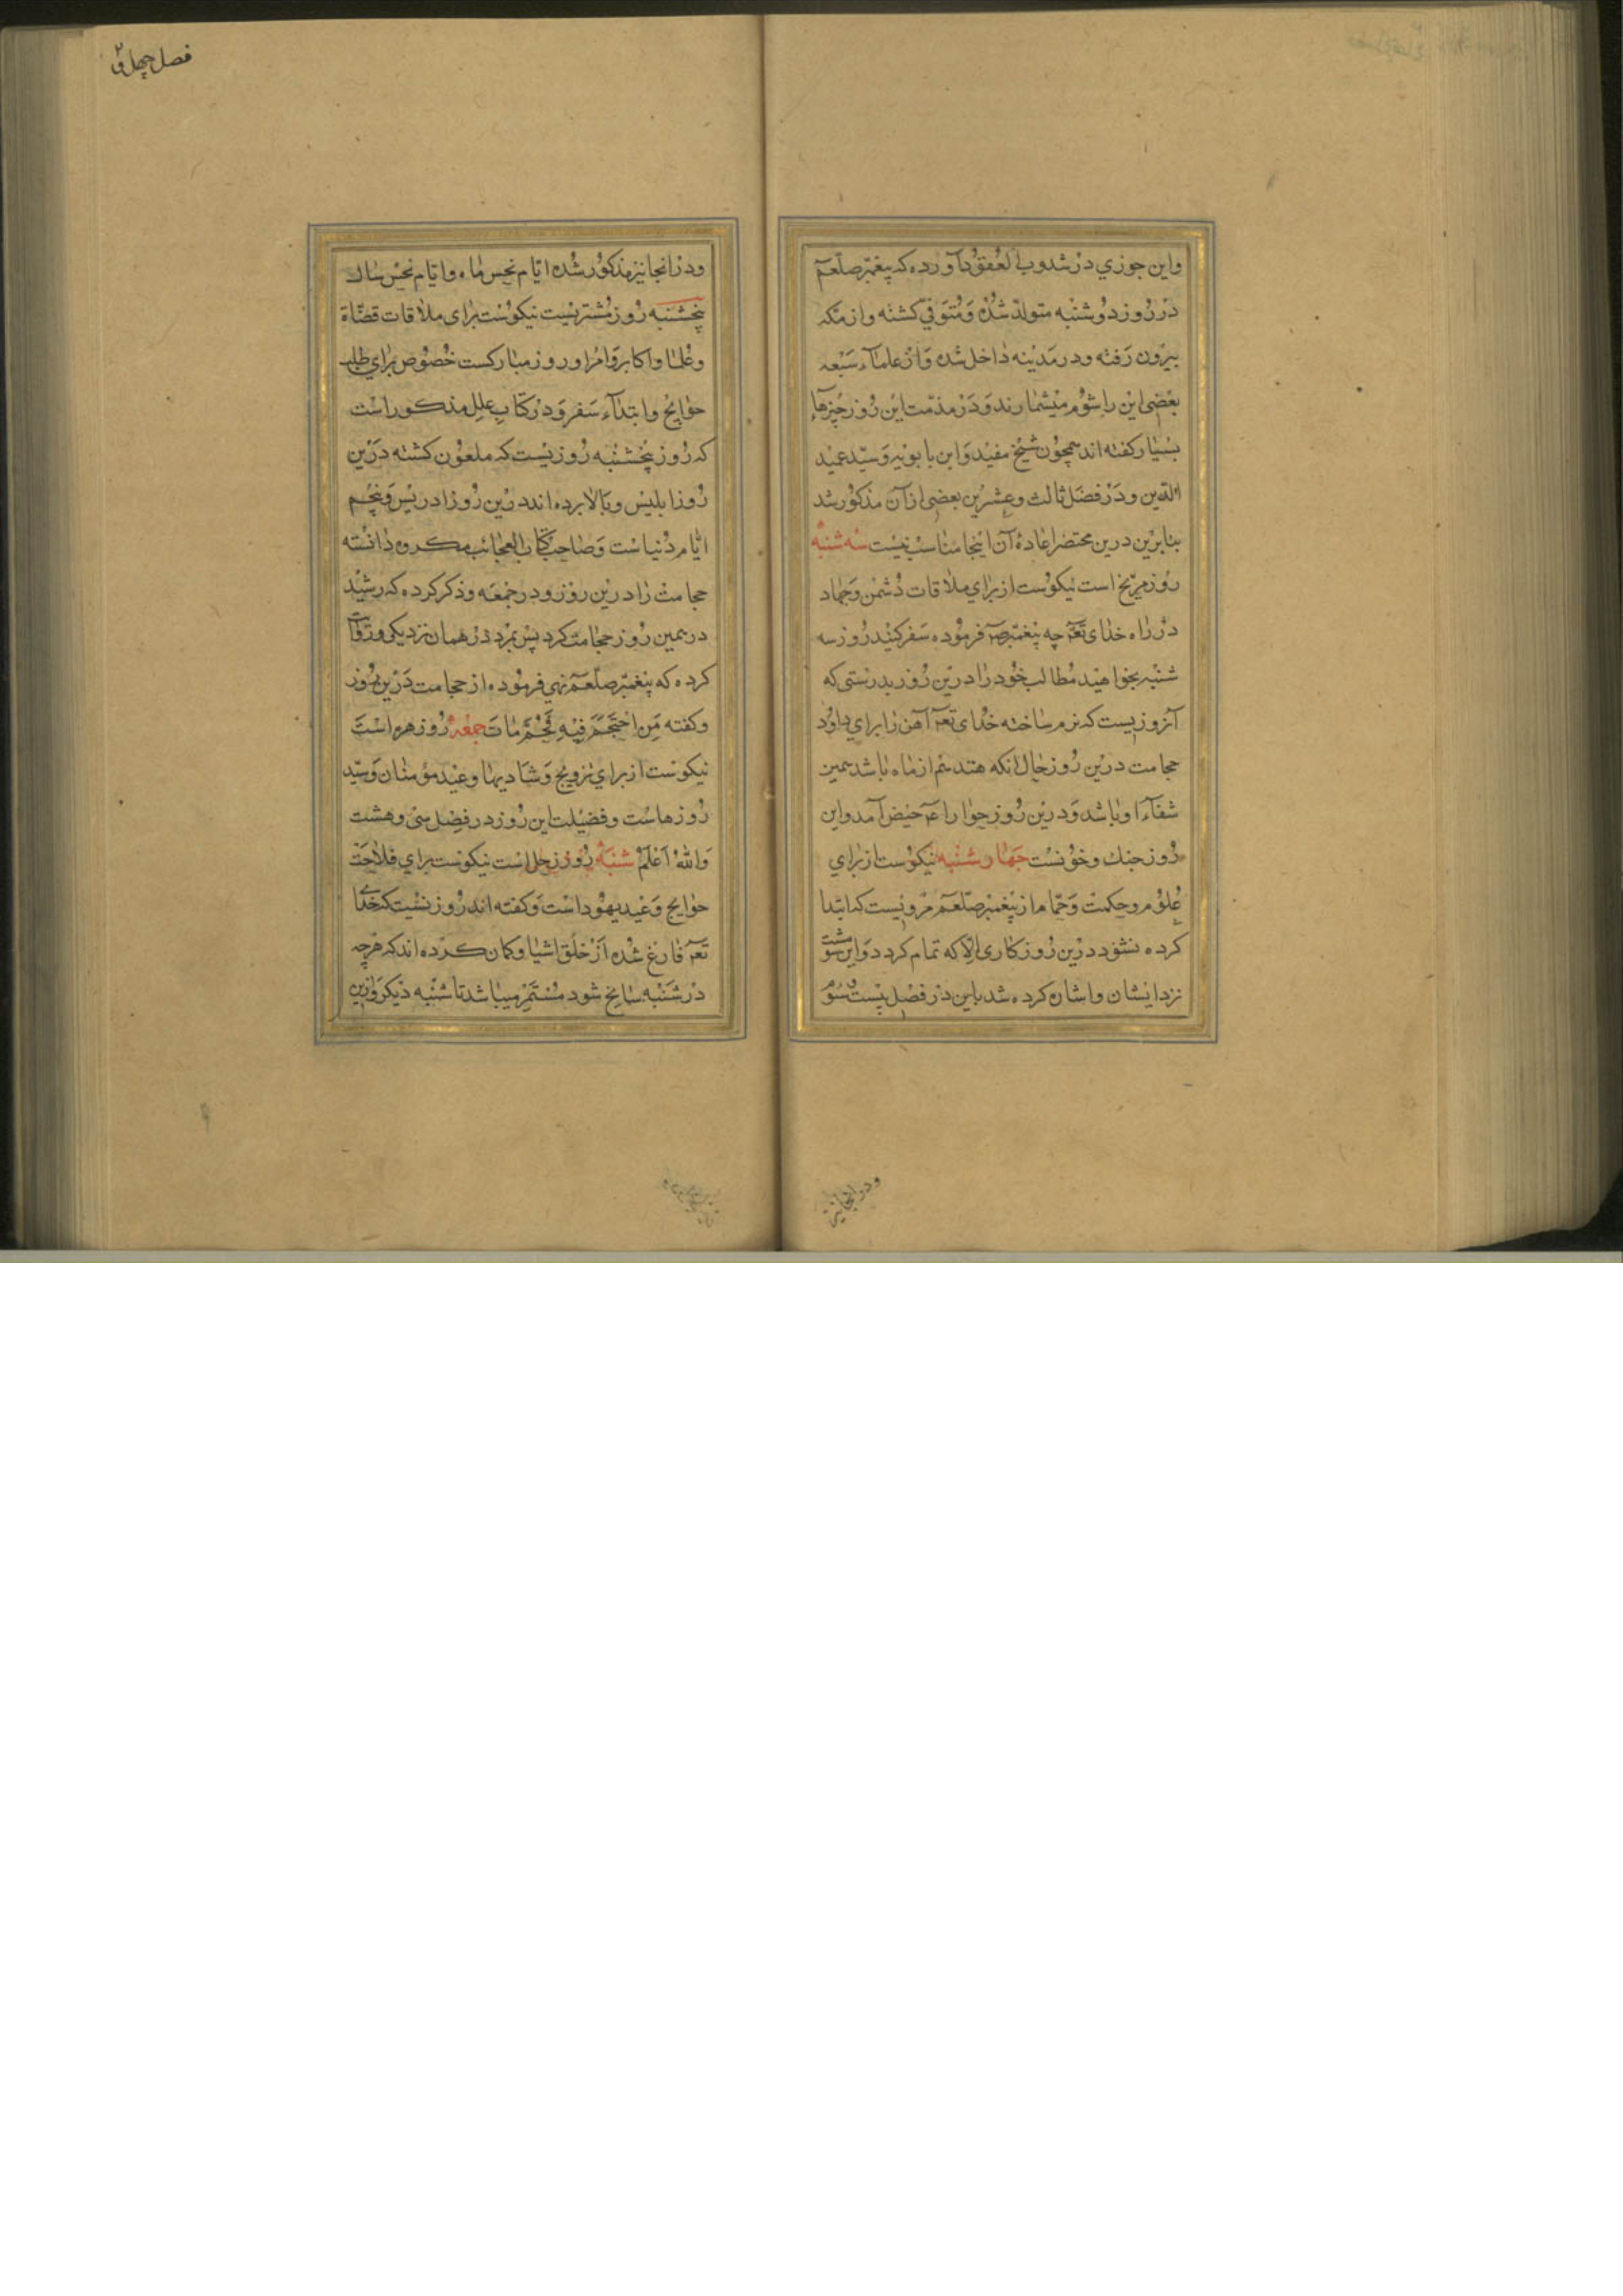 واین جوزی در شدوب لعقود آورده که پیغمبر صلّعم
در روز دوشنبه متولد شده و متوفی کشته و از مکه
بیرون رفته و در مدینه داخل شده و از علماء سبعه
بعضی این را شوم میشمارند و در مذمت این روز چیزها
بسیار کفته اند همچون شیخ مفید و ابن بابویه و سید عمید
الدین و در فصل ثالث و عشرین بعضی از آن مذکور شد
بنابرین درین مختصر اعادهٔ آن اینجا مناسب نیست سه شنبه
روز مریخ است نیکوست از برای ملاقات دشمن و جهاد
در راه خدای تع چه پیغمبر ص فرموده سفر کنید روز سه
شنبه بخواهید مطالب خود را درین روز بدرستی که
آنروزیست که نرم ساخته خدای تع آهن را برای داود
حجامت درین روز حال انکه هفدهم از ماه باشد همین
شفآء او باشد و درین روز حوا را ع حیض آمد و این
روز جنك و خونست جهار شنبه نیکوست از برای
علوم و حکمت و حمام از پیغمبر صلّعم مرویست که ابتدا
کرده نشود درین روز کاری الا که تمام کردد و این
نزد ایشان و اشاره کرده شد باین در فصل بیست و سوم
ودر انجانیز
فصل چهل و
ودر انجا نیز مذکور شده ایام نحس ماه و ایام نحس سال
پنجشنبه روز مشتریست نیکوست برای ملاقات قضاة
و علما و اکابر و امرا و روز مبارکست خصوص برای طلب
حوایج و ابتدآء سفر و در کتاب علل مذکور است
که روز پنجشنبه روزیست که ملعون کشته درین
روز ابلیس و بالا برده اند درین روز ادریس و پنجم
ایام دنیاست و صاحب کتاب العجائب مکروه دانسته
حجامت را درین روز و در جمعه و ذکر کرده که رشید
در همین روز حجامت کرد پس بمرد در همان نزدیکی و روایت
کرده که پیغمبر صلّعم نهی فرموده از حجامت درین روز
و کفته من احتجم فیه فحم مات جمعه روز زهره است
نیکوست از برای تزویج و شادیها و عید مؤمنان و سید
روزهاست و فضیلت این روز در فصل سی و هشت
والله اعلم شنبه روز زحل است نیکوست برای فلاحت
حوایج و عید یهود است و کفته اند روزیست که خدای
تع فارغ شده از خلق اشیا و کمان کرده اند که هرچه
در شنبه سانح شود مستمر میباشد تا شنبه دیکر و ازین